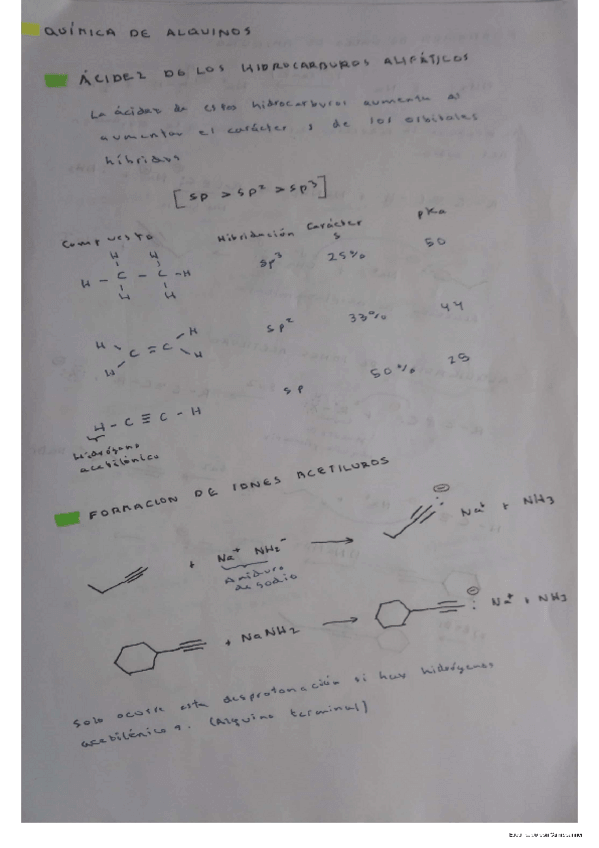 QUÍMICA DE ALQUINOS
ÁCIDEZ DE LOS HIDROCARBUROS ALIFÁTICOS
La ácidez de estos hidrocarburos aumenta al
aumentar el carácter s de los orbitales
híbridos
[sp > sp² > sp³]
Compuesto Hibridación Carácter s pKa
H H
H - C - C - H sp³ 25% 50
H H
H H
C = C sp² 33% 44
H H
H - C ≡ C - H sp 50% 25
Hidrógeno
acetilénico
FORMACION DE IONES ACETILUROS
+ Na⁺ NH₂⁻ → ⊖ : Na⁺ + NH₃
Amiduro
de sodio
+ NaNH₂ → ⊖ : Na⁺ + NH₃
Solo ocurre esta desprotonación si hay hidrógenos
(Alquino terminal)